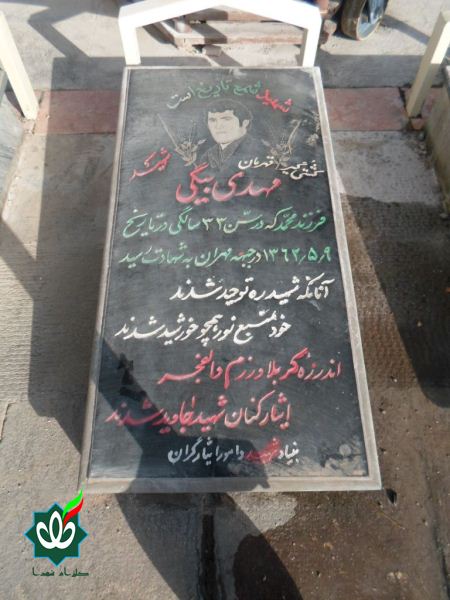 شهید شمع تاریخ است
شهید
قهرمان
مهدی بیگی
فرزند محمد که در سن ۳۳ سالگی در تاریخ
۱۳۶۲/۵/۹ در جبهه مهران به شهادت رسید
آنانکه شهید ره توحید شدند
خود منبع نور همچو خورشید شدند
اندر ره کربلا و رزم والفجر
ایثار کنان شهید جاوید شدند
بنیاد شهید و امور ایثارگران
گلزار شهدا